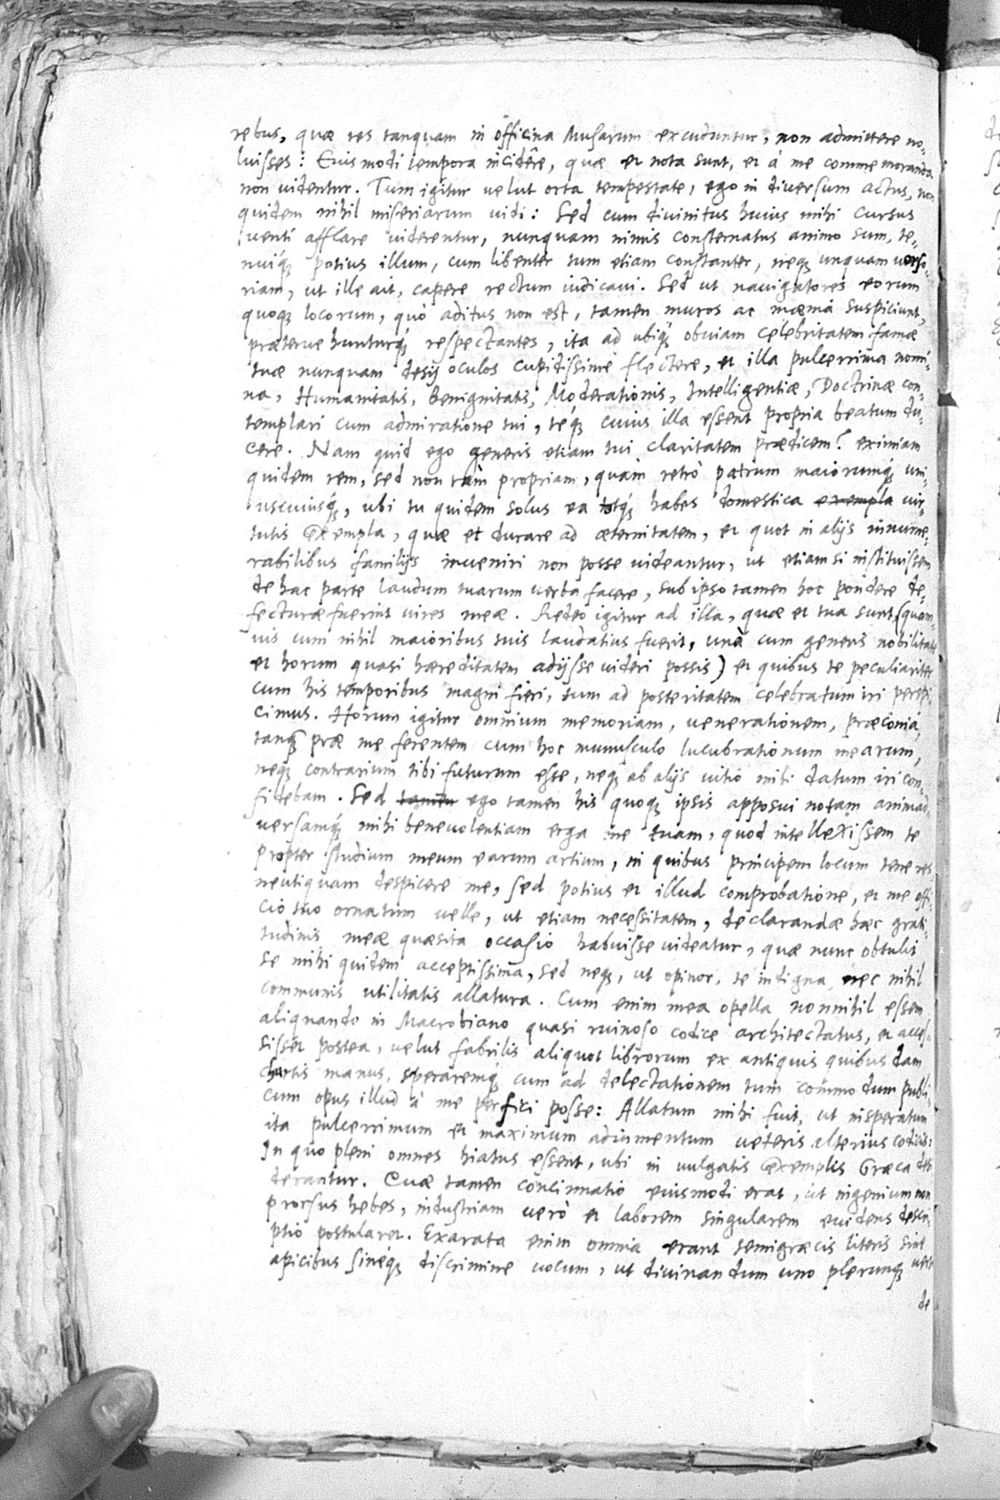 rebus, quæ res tanquam in officina Musarum excuduntur, non admittere no-
luisses: Eiusmodi tempora incidêre, quæ et nota sunt, et à me commemoranda
non uidentur. Tum igitur uelut orta tempestate, ego in diuersum actus, non
quidem nihil miseriarum uidi: Sed cum diuinitus huius mihi cursus
uenti afflare uiderentur, nunquam nimis consternatus animo sum, te-
nuiq; potius illum, cum libenter tum etiam constanter, neq; unquam uorso-
riam, ut ille ait, capere rectum iudicaui. Sed ut nauigatores eorum
quoq; locorum, quò aditus non est, tamen muros ac mœnia suspiciunt,
præteruehunturq; respectantes, ita ad ubiq; obuiam celebritatem famæ
tuæ nunquam desij oculos cupidissimè flectere, et illa pulcerrima nomi-
na, Humanitatis, Benignitatis, Moderationis, Intelligentiæ, Doctrinæ con-
templari cum admiratione tui, téq; cuius illa essent propria beatum du-
cere. Nam quid ego generis etiam tui claritatem prædicem? eximiam
quidem rem, sed non tàm propriam, quàm retrò patrum maiorumq; uni-
uscuiusq;, ubi tu quidem solus ea totq; habes domestica exempla uir-
tutis exempla, quæ et durare ad æternitatem, et quot in alijs innume-
rabilibus familijs inueniri non posse uideantur, ut etiam si instituissem
de hac parte laudum tuarum uerba facere, sub ipso tamen hoc pondere de-
fecturæ fuerint uires meæ. Redeo igitur ad illa, quæ et tua sunt, (quam-
uis cum nihil maioribus tuis laudatius fuerit, unà cum generis nobilitate
et horum quasi hæreditatem adijsse uideri possis) et quibus te peculiariter
cum his temporibus magni fieri, tum ad posteritatem celebratum iri perspi-
cimus. Horum igitur omnium memoriam, uenerationem, præconia,
tanq; præ me ferentem cum hoc munusculo lucubrationum mearum,
neq; contrarium tibi futurum esse, neq; ab alijs uitio mihi datum iri con-
fidebam. Sed tamen ego tamen his quoq; ipsis apposui notam animad-
uersamq; mihi beneuolentiam erga me tuam, quod intellexissem te
propter studium meum earum artium, in quibus principem locum teneres
neutiquam despicere me, sed potius et illud comprobatione, et me offi-
cio tuo ornatum uelle, ut etiam necessitatem, declarandæ hæc grati-
tudinis meæ quæsita occasio habuisse uideatur, quæ nunc obtulit
se mihi quidem acceptissima, sed neq;, ut opinor, te indigna, nec nihil
communis utilitatis allatura. Cum enim mea opella nonnihil essem
aliquando in Macrobiano quasi ruinoso codice architectatus, et acces-
sisset postea, uelut fabrilis aliquot librorum ex antiquis quibusdam
chartis manus, speraremq; cum ad delectationem tum commodum publi-
cum opus illud à me perfici posse: Allatum mihi fuit, ut insperatum
ita pulcerrimum et maximum adiumentum ueteris alterius codicis:
In quo pleni omnes hiatus essent, ubi in uulgatis exemplis Græca desi-
derantur. Quæ tamen concinnatio eiusmodi erat, ut ingenium non
prorsus hebes, industriam uerò et laborem singularem euidens descri-
ptio postularet. Exarata enim omnia erant semigræcis literis sine
apicibus sineq; discrimine uocum, ut diuinandum uno plerunq; uer-
de